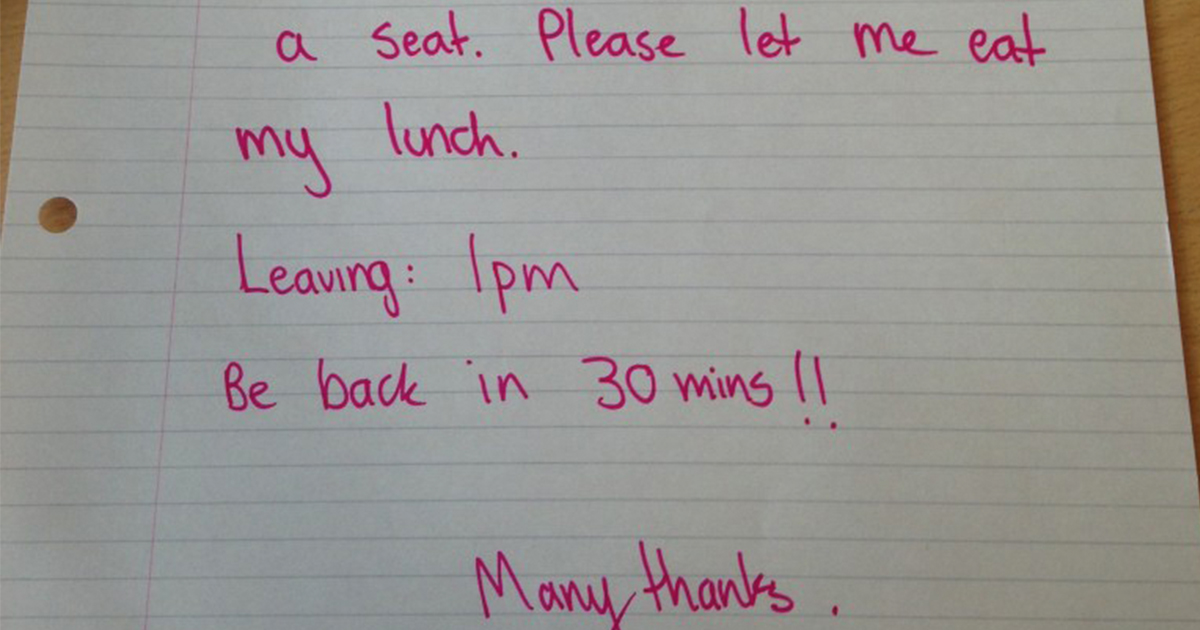 a seat. Please let me eat
my lunch.
Leaving: 1pm
Be back in 30 mins!!
Many thanks.